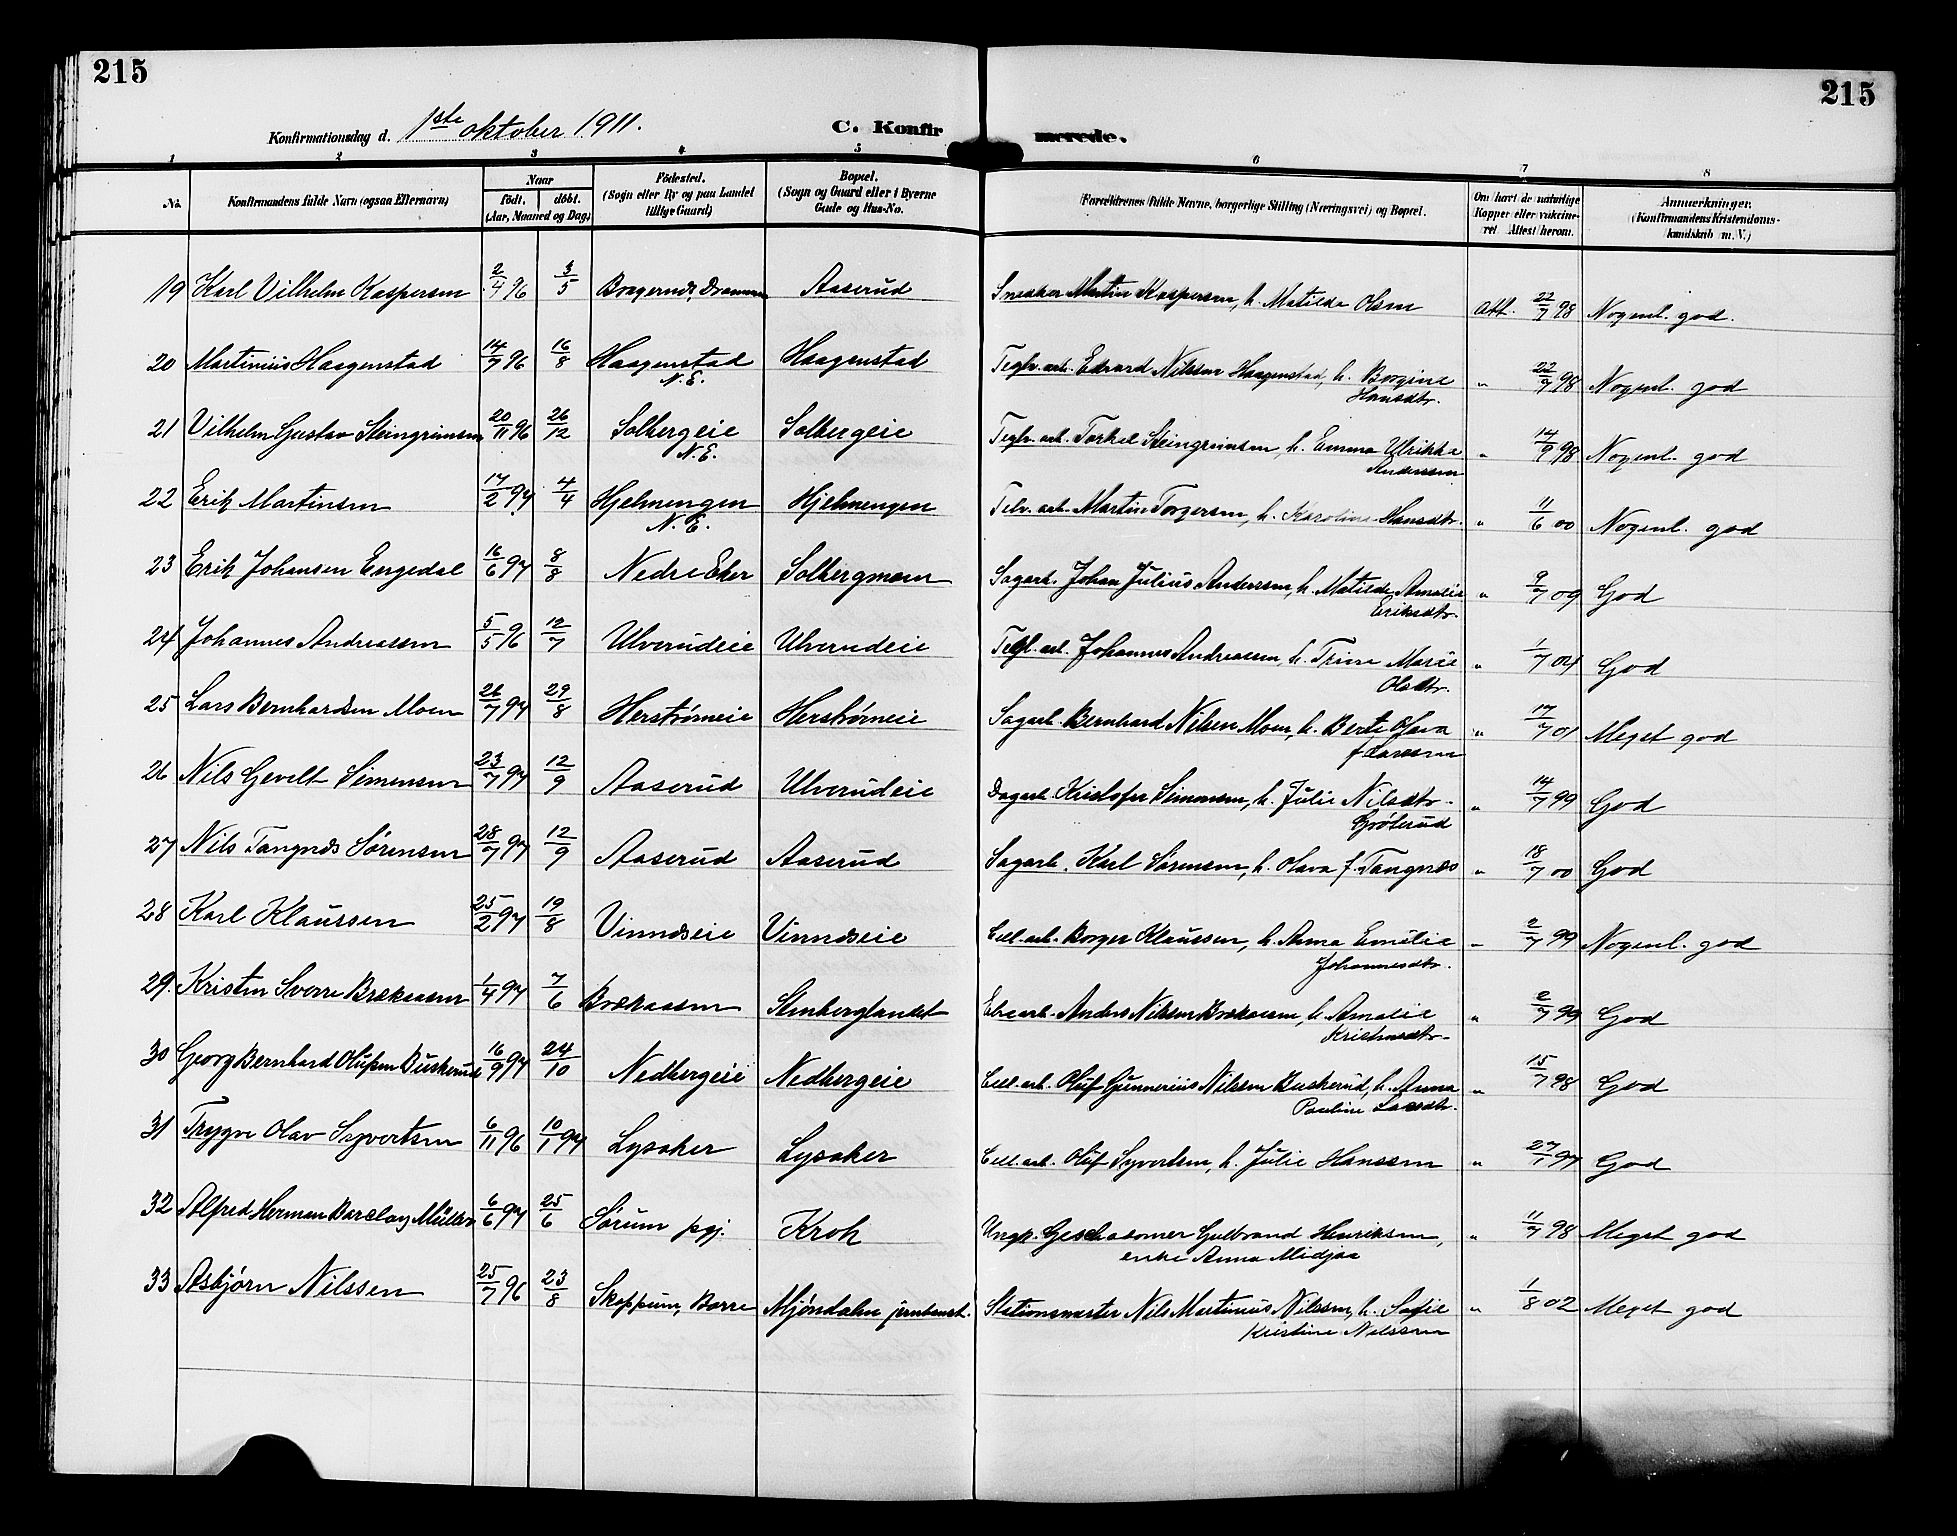 215
215
Konfirmationsdag d. 1ste oktober 1911.
C. Konfirmerede.
1 2 3 4 5 6 7 8
No. Konfirmandens fulde Navn (ogsaa Efternavn) Naar født. døbt. (Aar, Maaned og Dag) Fødested. (Sogn eller By og paa Landet tillige Gaard) Bopæl. (Sogn og Gaard eller i Byerne Gade og Hus-No. Forældrenes fulde Navne, borgerlige Stilling (Næringsvei) og Bopæl. Om havt de naturlige Kopper eller vaccineret Attest herom. Anmærkninger. (Konfirmandens Kristendomskundskab m. V.)
19 Karl Vilhelm Kaspersen 2/4 96 3/5 Bragernes, Drammen Aaserud Snedker Martin Kaspersen, h. Matilde Olsen Att. 22/7 98 Nogenl. god.
20 Martinius Haagenstad 14/7 96 16/8 Haagenstad N.E. Haagenstad Teglv. arb. Edvard Nilssen Haagenstad, h. Borgine Hansdtr. " 22/7 98 Nogenl. god
21 Vilhelm Gustav Steingrimsen 20/11 96 26/12 Solbergeie N.E. Solbergeie Teglv. arb. Torkel Steingrimsen, h. Emma Ulrikke Anderssen " 14/9 98 Nogenl. god
22 Erik Martinsen 17/2 97 4/4 Hjelmengen N.E. Hjelmengen Telv. arb. Martin Torgersen, h. Karoline Hansdtr. " 11/6 00 Nogenl. god
23 Erik Johansen Engedal 16/6 97 8/8 Nedre Eker Solbergmoen Sagarb. Johan Julius Anderssen, h. Matilde Amalie Eriksdtr. " 9/7 09 God
24 Johannes Andreassen 5/5 96 12/7 Ulverudeie Ulverudeie Tegl. arb. Johannes Andreassen, h. Trine Marie Olsdtr. " 1/7 04 God
25 Lars Bernhardsen Moen 26/7 97 29/8 Herstrømeie Herstrømeie Sagarb. Bernhard Nilsen Moen, h. Berte Olava f. Larssen " 17/7 01 Meget god
26 Nils Gevelt Simensen 23/7 97 12/9 Aaserud Ulverudeie Dagarb. Kristofer Simensen, h. Julie Nilsdtr. Grøterud " 14/7 99 God
27 Nils Tangnæs Sørensen 28/7 97 12/9 Aaserud Aaserud Sagarb. Karl Sørensen, h. Olava f. Tangnæs " 18/7 00 God
28 Karl Klaussen 25/2 97 19/8 Vinnæseie Vinnæseie Cell. arb. Borger Klaussen, h. Anna Emilie Johannesdtr. " 2/7 99 Nogenl. god
29. Kristen Sverre Brekaasen 1/4 97 7/6 Brekaasen Stenberglandet Elvearb. Anders Nilssen Brekaasen, h. Amalie Kristensdtr. " 2/7 99 God
30 Georg Bernhard Olufsen Buskerud 16/9 97 24/10 Nedbergeie Nedbergeie Cell. arb. Oluf Gunnerius Nilssen Buskerud, h. Anna Pauline Larsdtr. " 15/7 98 God
31 Trygve Olav Syvertsen 6/11 96 10/1 97 Lysaker Lysaker Cell. arb. Oluf Syvertsen, h. Julie Hanssen " 27/7 97 God
32 Alfred Herman Barclay Müller 6/6 97 25/6 Sørum pgj. Kroh Gulbrand Henriksen, enke Anna Midjaa " 11/7 98 Meget god
33 Asbjørn Nilssen 25/7 96 23/8 Skoppum, Borre Mjøndalen jernbanest. Stationsmester Nils Martinius Nilssen, h. Sofie Kristine Nilssen " 1/8 02 Meget god